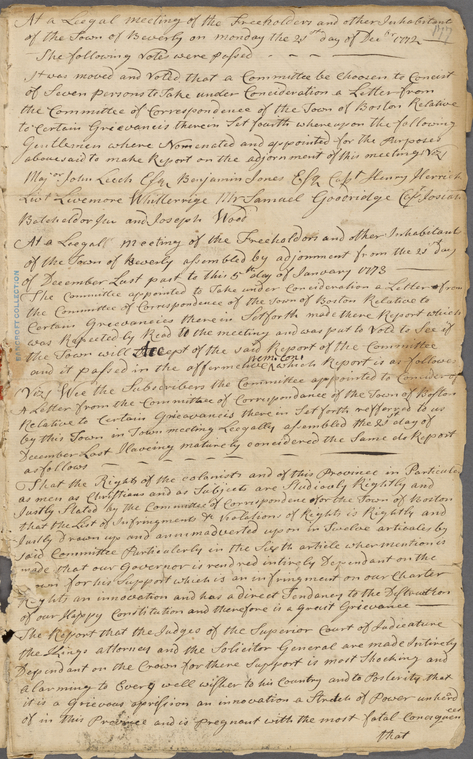 At a Leegal meeting of the Freeholders and other Inhabitants
of the Town of Beverly on monday the 21st day of Decbr 1772
The following Votes were passed
It was moved and Voted that a Committee be Choosen to Concist
of Seven Persons to Take under Concideration a Letter from
the Committee of Correspondence of the Town of Boston Relative
to Certain Grieevancis therein Set fourth whereupon the following
Gentlemen where Nominated and appointed for the Purposed
abovesaid to make Report on the adjornment of this meeting Viz
Majr John Leech Esqr Benjamin Jones Esqr Capt Henry Herrick
Livt Livemore Whitterige Mr Samuel Goodridge Capt Josiah
Batcheldor Jur and Joseph Wood
At a Leegall meeting of the Freeholders and other Inhabitants
of the Town of Beverly assembled by adjornment from the 21st day
of December Last past to this 5th day of January 1773
The Committee appointed to Take under Concideration a Letter from
the Committee of Correspondence of the Town of Boston Relative to
Certain Grieevancies there in Setforth made there Report which
was Repeted by Read to the meeting and was put to Vote to See if
the Town will Accept of the said Report of the Committee
and it passed in the affirmetive which Report is as followes
Viz We the Subscribers the Committee appointed to Concider of
a Letter from the Committee of Correspondance of the Town of Boston
Relative to Certain Grieevances there in Set forth refferred to us
by this Town in Town meeting Leegally assembled the 21 day of
December Last Haveing maturely concidered the Same do Report
as follows
That the Rights of the colonists and of this Province in Particular
as men as Christians and as Subjects are Studiously Rightly and
Justly Stated by the Committee of Correspondence of for the Town of Boston
that the List of Infringments & Violations of Rights is Rightly and
Justly drawn up and annimadverted upon in Twelve articales by
said Committee Particulerly in the Sixth article where mention is
made that our Governor is rendred intirely Dependant on the
for his Support which is an infringment on our Charter
Rights an innovation and has a direct Tendancy to the Destruction
of our Happy Constitution and therefore is a great Grieevance
The Report that the Judges of the Superior Court of Judicature
the Kings attorney and the Solicitor General are made Intirely
Dependant on the Crown for there Support is most Shocking and
alarming to Every well wisher to his Country and to Posterity that
it is a Grievous opression an innovation a Stretch of Power unheard
of in this Province and is pregnant with the most fatal Conciquences
that
BANCROFT COLLECTION